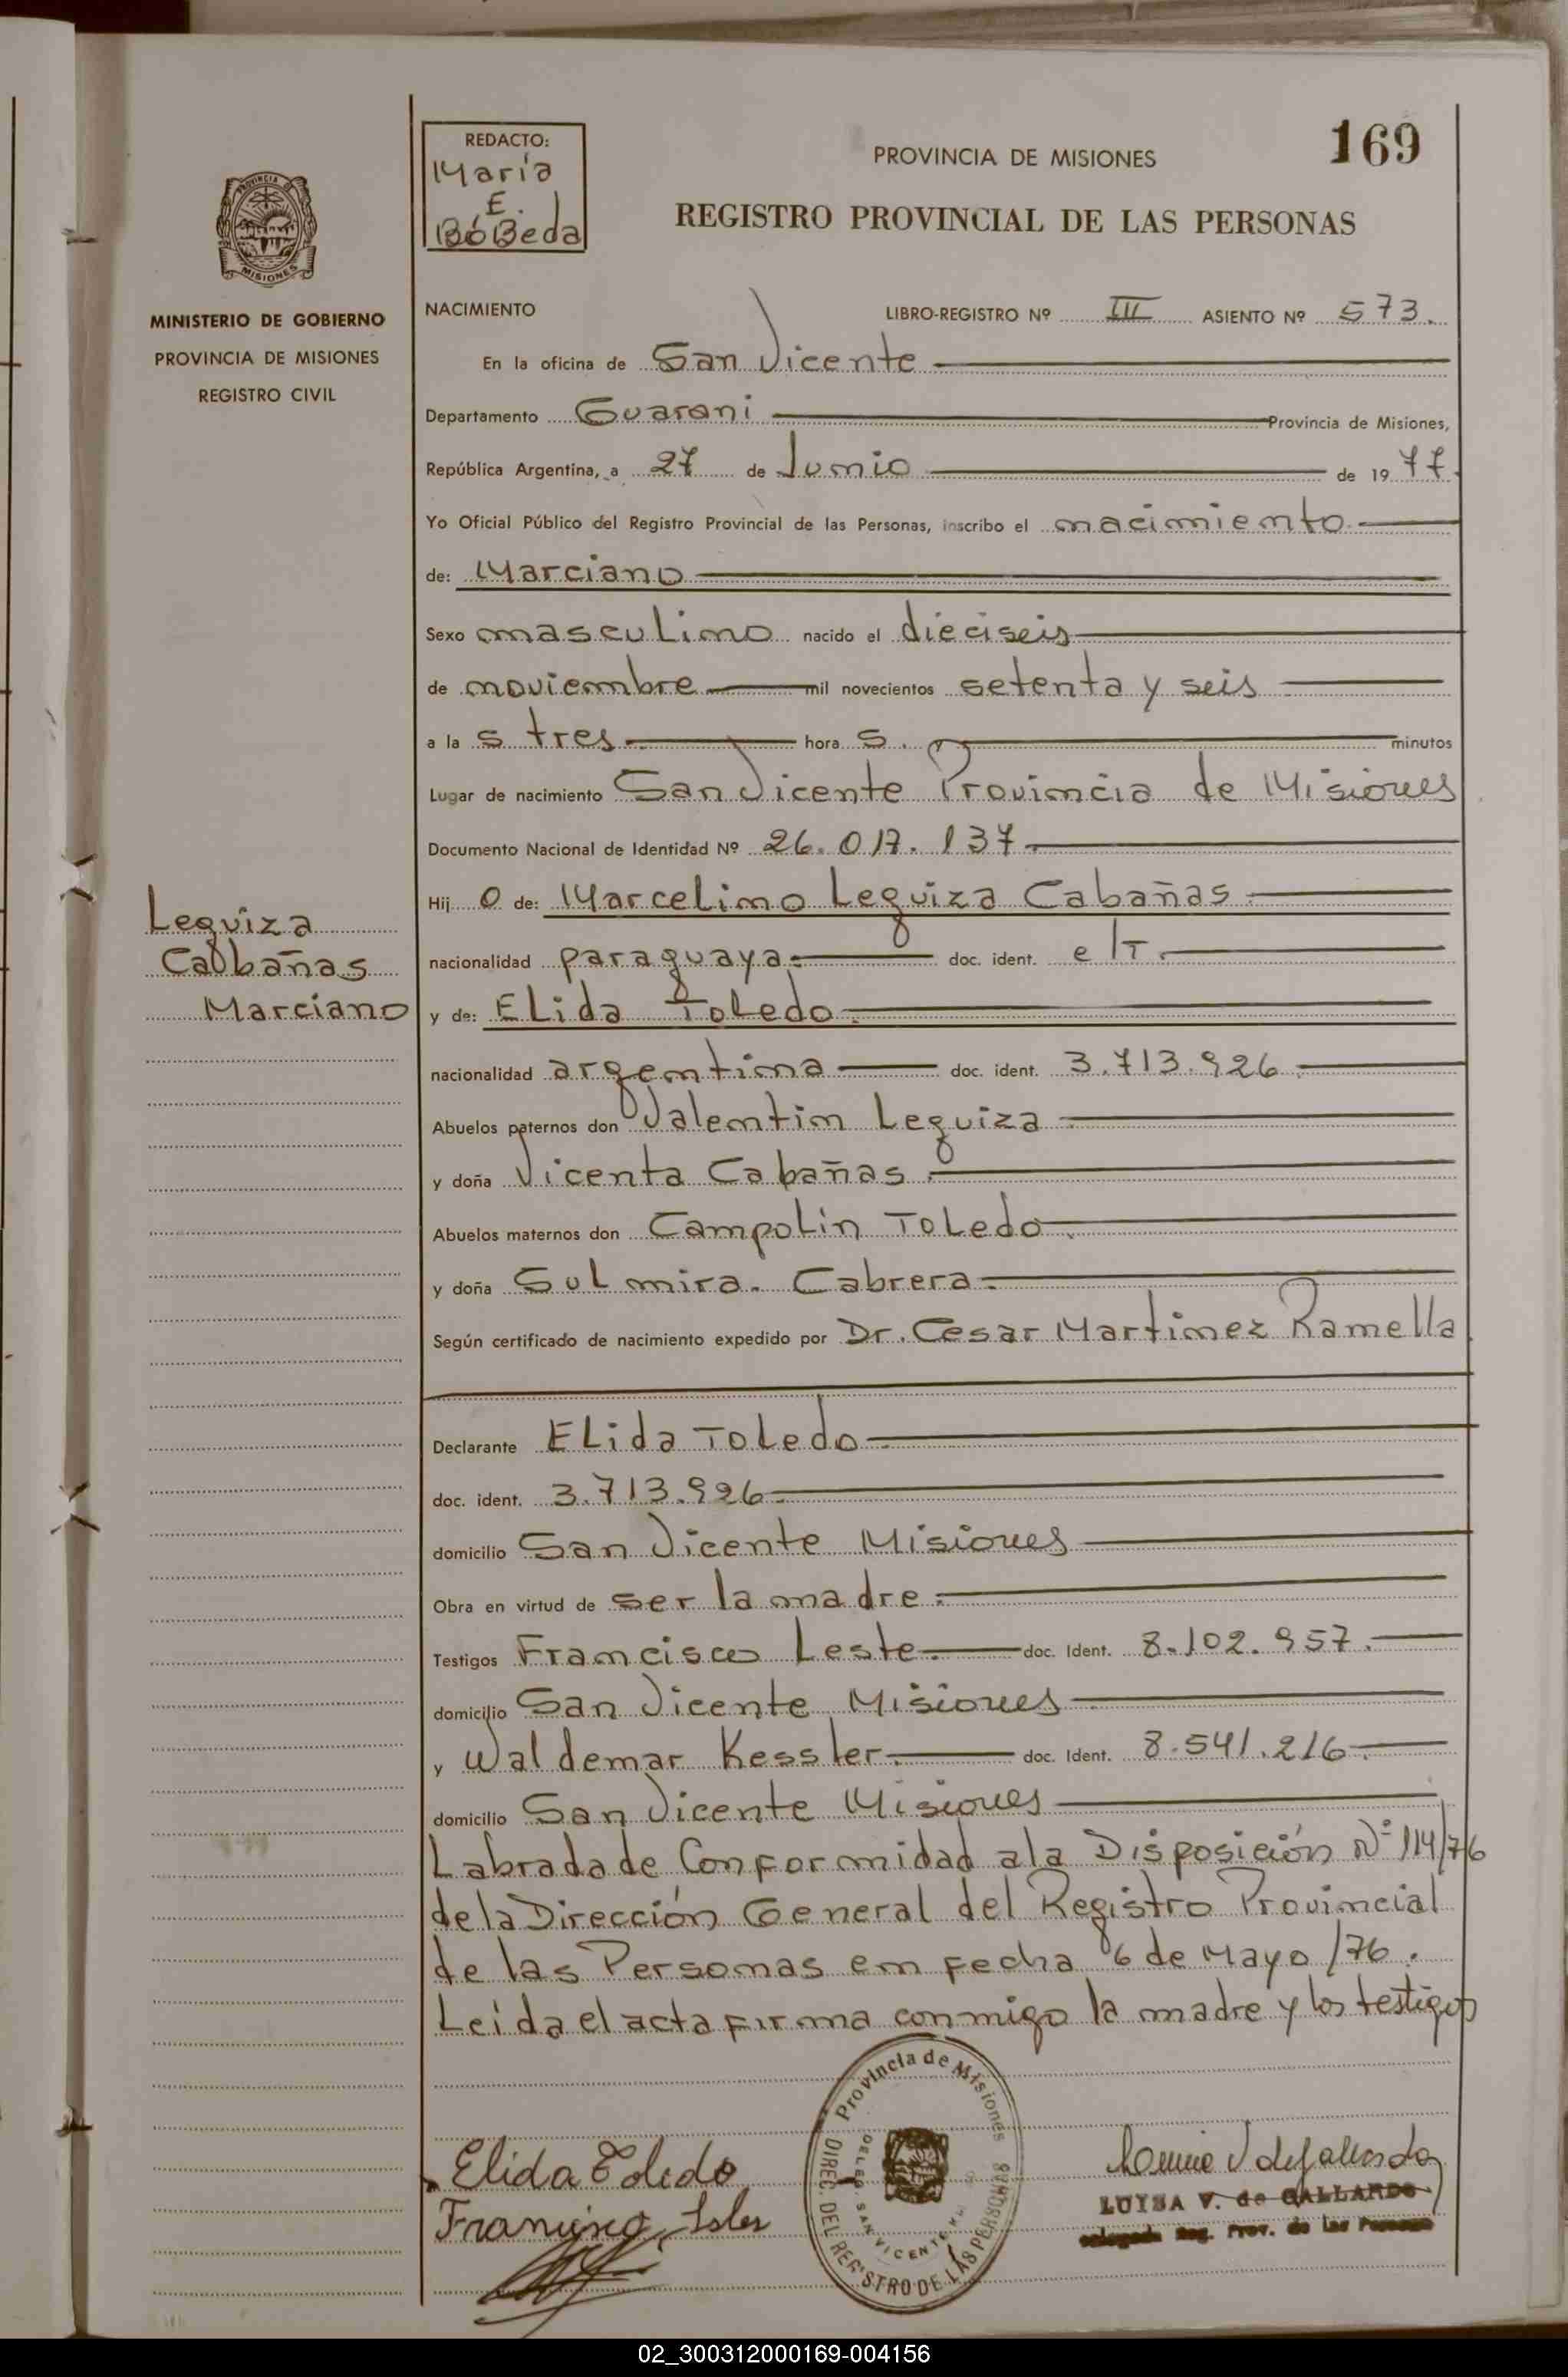 REDACTO:
María
E.
BóBeda
PROVINCIA DE MISIONES
169
REGISTRO PROVINCIAL DE LAS PERSONAS
PROVINCIA DE
MISIONES
MINISTERIO DE GOBIERNO
PROVINCIA DE MISIONES
REGISTRO CIVIL
NACIMIENTO LIBRO-REGISTRO Nº III ASIENTO Nº 573.
En la oficina de San Vicente
Departamento Guarani Provincia de Misiones,
República Argentina, a 27 de Junio de 1977.
Yo Oficial Público del Registro Provincial de las Personas, inscribo el nacimiento
de: Marciano
Sexo masculino nacido el dieciseis
de noviembre mil novecientos setenta y seis
a la s tres hora s. minutos
Lugar de nacimiento San Vicente Provincia de Misiones
Documento Nacional de Identidad Nº 26.017.137.
Hij o de: Marcelino Leguiza Cabañas
nacionalidad paraguaya. doc. ident. e/T.
y de: Elida Toledo.
nacionalidad argentina doc. ident. 3.713.926.
Abuelos paternos don Valentin Leguiza
y doña Vicenta Cabañas.
Abuelos maternos don Campolin Toledo.
y doña Sulmira. Cabrera.
Según certificado de nacimiento expedido por Dr. Cesar Martinez Ramella
Leguiza
Cabbañas
Marciano
Declarante Elida Toledo
doc. ident. 3.713.926.
domicilio San Vicente Misiones
Obra en virtud de ser la madre.
Testigos Francisco Leste. doc. Ident. 8.102.957.
domicilio San Vicente Misiones
y Waldemar Kessler. doc. Ident. 8.541.216.
domicilio San Vicente Misiones
Labrada de Conformidad a la Disposición Nº 114/76
de la Dirección General del Registro Provincial
de las Personas en Fecha 6 de Mayo /76.
Leída el acta firma conmigo la madre y los testigos
Provincia de Misiones
DIREC. DEL REGISTRO DE LAS PERSONAS
DELEG. SAN VICENTE
Elida Toledo
Francisco
LUISA V. de GALLARDO
Reg. Prov. de las Personas
02_300312000169-004156